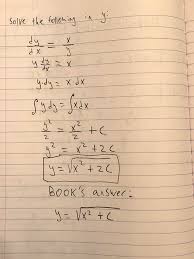 Solve the following in y:
dy/dx = x/y
y dy/dx = x
y·dy = x·dx
∫y dy = ∫x dx
y²/2 = x²/2 + C
y² = x² + 2C
y = √x² + 2C
BOOK's answer:
y = √x² + C